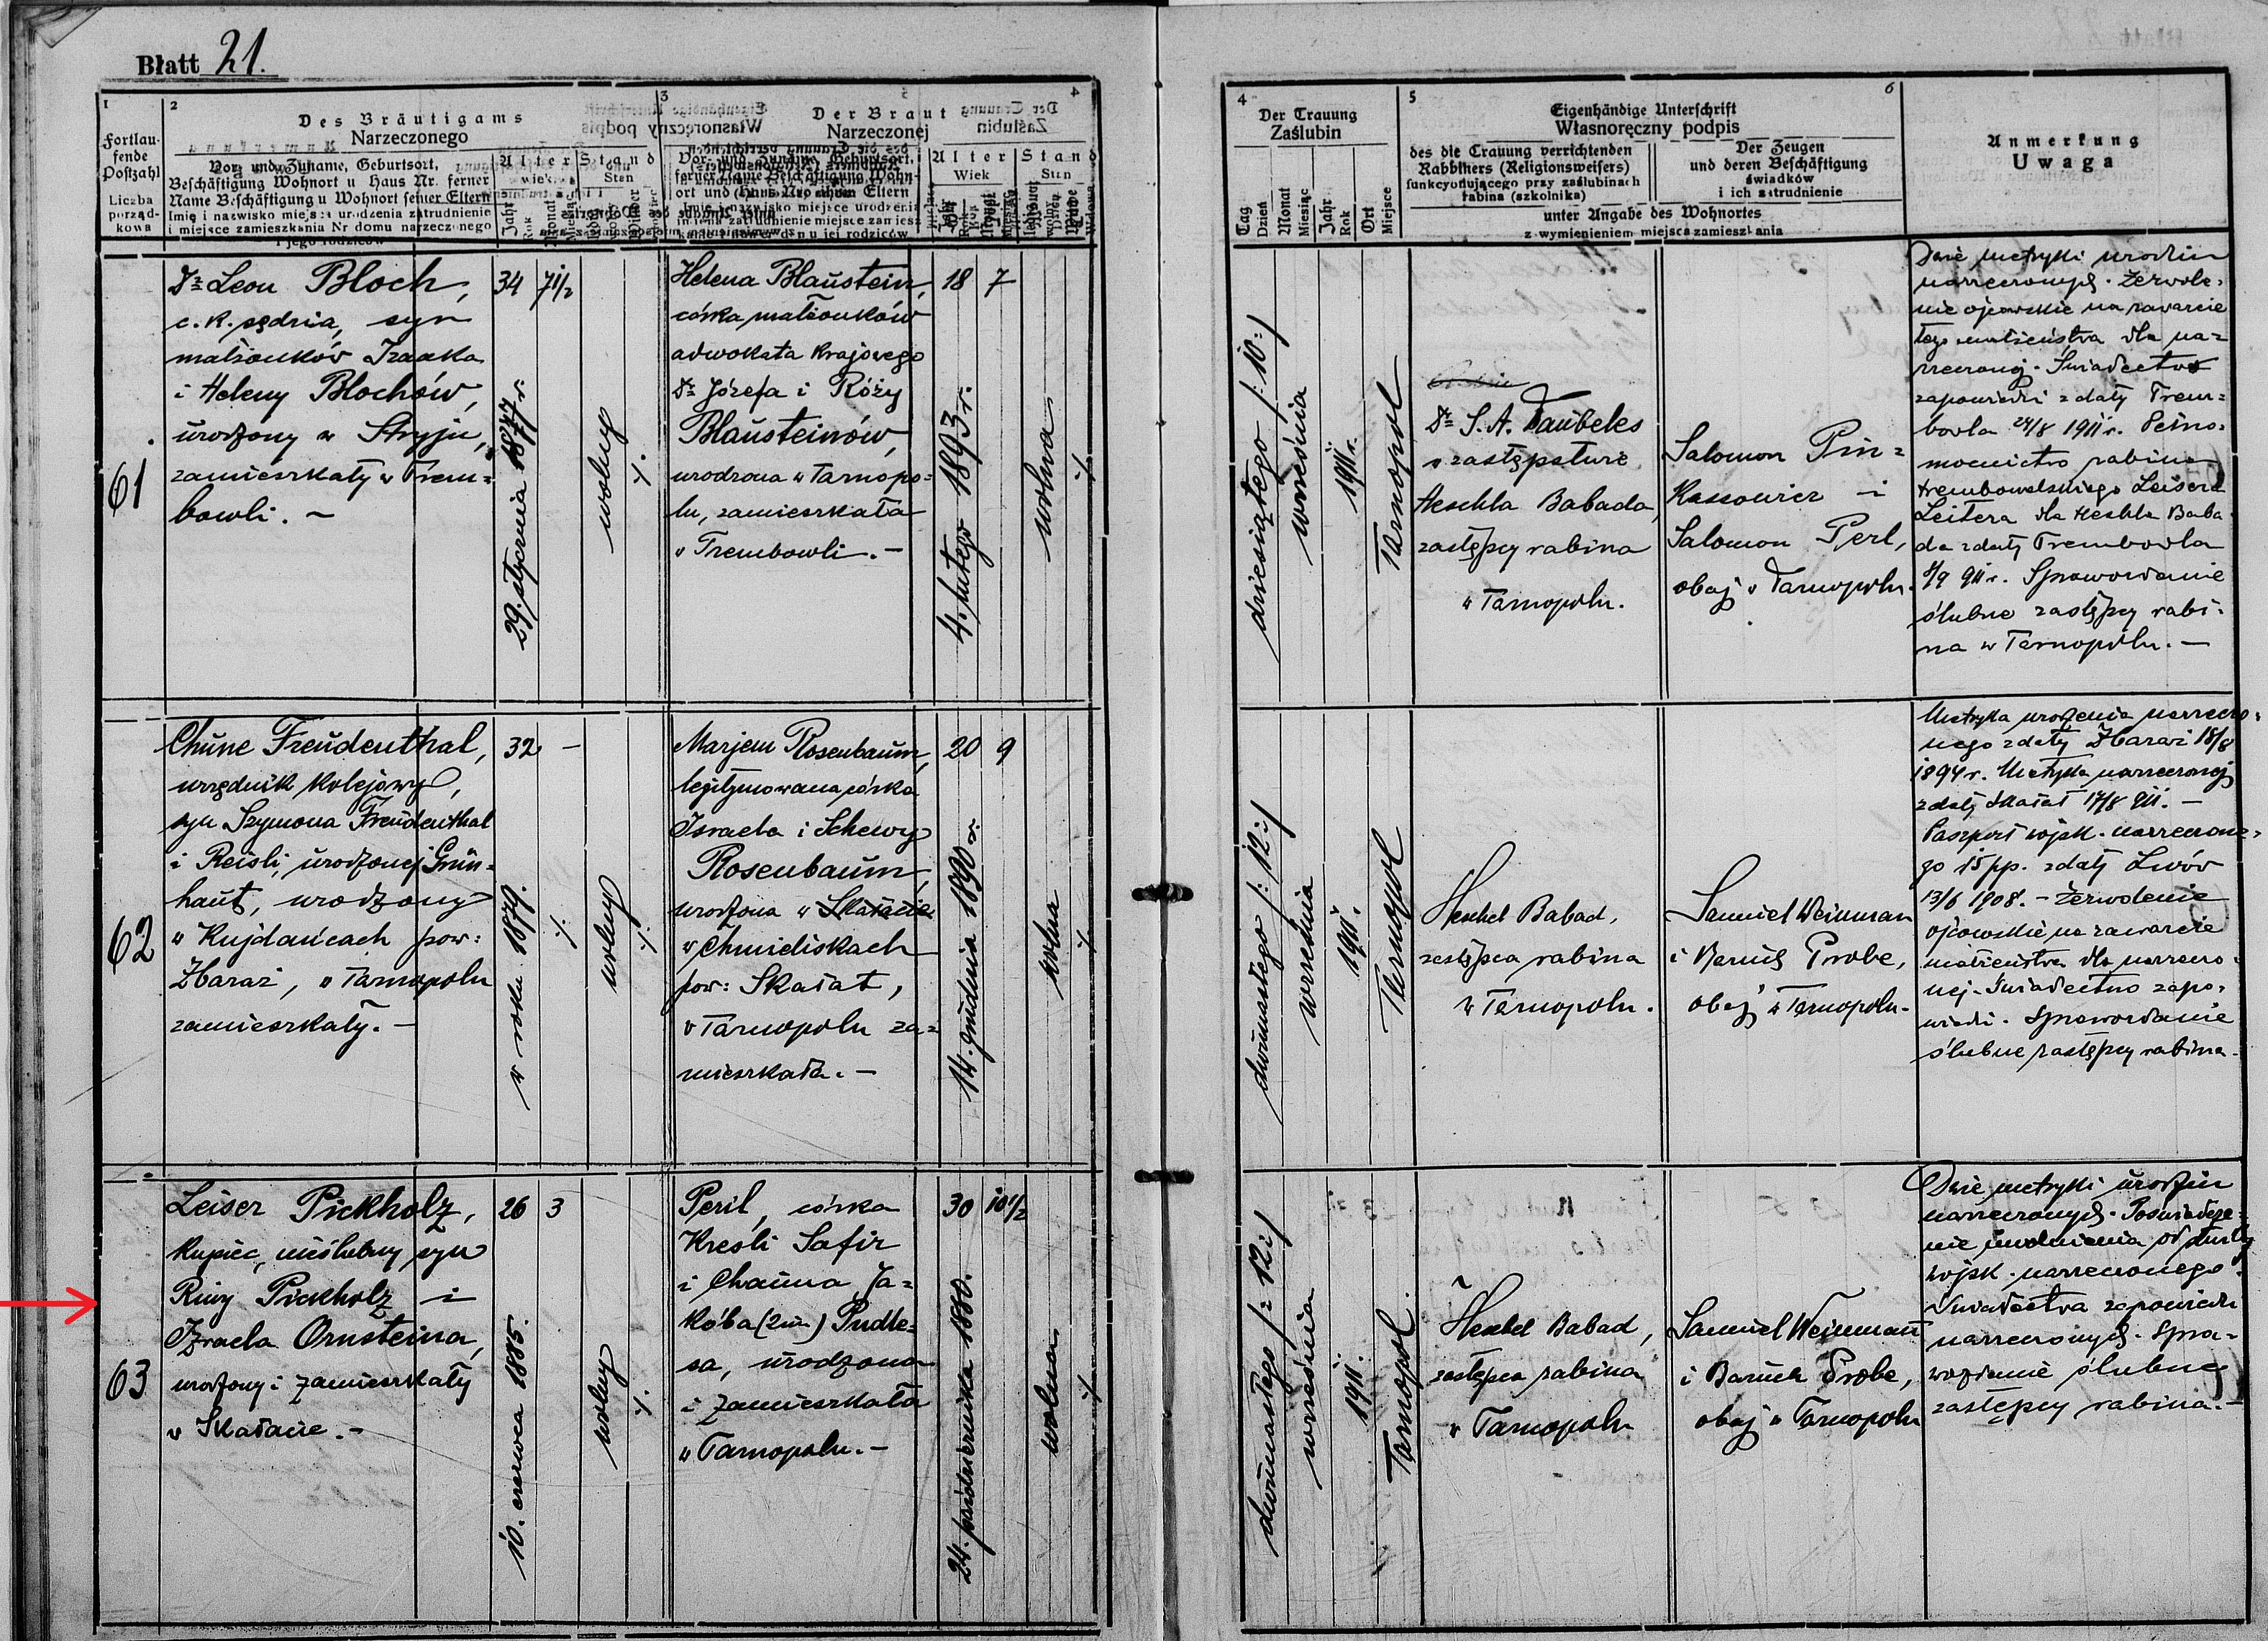 Blatt 21.
1
2
3
4
Des Bräutigams
Narzeczonego
Der Braut
Narzeczonej
Fortlau-
fende
Postzahl
Liczba
porząd-
kowa
Vor- und Zuname, Geburtsort,
Beschäftigung Wohnort u Haus Nr. ferner
Name Beschäftigung u Wohnort seiner Eltern
Imię i nazwisko miejsce urodzenia zatrudnienie
i miejsce zamieszkania Nr domu narzeczonego
i jego rodziców
Alter
wiek
Stand
Stan
Alter
Wiek
Stand
Stan
61
Dr Leon Bloch,
c. k. sędzia, syn
małżonków Izaaka
i Heleny Blochów,
urodzony w Stryju,
zamieszkały w Trem=
bowli. —
34
7 1/2
29. stycznia 1877 r.
wolny
Helena Blaustein,
córka małżonków
adwokata krajowego
Dr Józefa i Róży
Blausteinów,
urodzona w Tarnopo=
lu, zamieszkała
w Trembowli. —
18
7
4. lutego 1893 r.
wolna
62
Chune Freudenthal,
urzędnik kolejowy,
syn Szymona Freudenthal
i Reisli, urodzonej Grün=
haut, urodzony
w Kujdańcach pow:
Zbaraż, w Tarnopolu
zamieszkały. —
32
—
w roku 1879.
wolny
Marjem Rosenbaum,
legitymowana córka
Israela i Schewy
Rosenbaum,
urodzona w Skałacie
w Chmieliskach
pow: Skałat,
w Tarnopolu za=
mieszkała. —
20
9
14. grudnia 1890 r.
wolna
63
Leiser Pickholz,
kupiec, nieślubny syn
Riwy Pickholz i
Izraela Ornsteina,
urodzony i zamieszkały
w Skałacie. —
26
3
10. czerwca 1885.
wolny
Peril, córka
Kreśli Safir
i Chaima Ja=
kóba (2im) Pudle=
sa, urodzona
i zamieszkała
w Tarnopolu. —
30
10 1/2
24. października 1880.
wolna
4
5
6
Der Trauung
Zaślubin
Tag
Dzień
Monat
Miesiąc
Jahr
Rok
Ort
Miejsce
Eigenhändige Unterschrift
Własnoręczny podpis
des die Trauung verrichtenden
Rabbiners (Religionsweisers)
funkcyonującego przy zaślubinach
rabina (szkolnika)
Der Zeugen
und deren Beschäftigung
świadków
i ich zatrudnienie
unter Angabe des Wohnortes
z wymienieniem miejsca zamieszkania
Anmerkung
Uwaga
dziesiątego /:10:/
września
1911 r.
Tarnopol
Dr S. A. Taubeles
w zastępstwie
Heschla Babada,
zastępcy rabina
w Tarnopolu.
Salomon Pin=
kasowicz i
Salomon Perl,
obaj w Tarnopolu.
Dwie metryki urodzin
narzeczonych. Zezwole=
nie ojcowskie na zawarcie
tego małżeństwa dla na=
rzeczonej. Świadectwo
zapowiedzi z daty Trem=
bowla 24/8 1911 r. Pełno=
mocnictwo rabina
trembowelskiego Leisera
Leitera dla Heschla Baba
da z daty Trembowla
8/9 911 r. Sprawozdanie
ślubne zastępcy rabi=
na w Tarnopolu. —
dwunastego /:12:/
września
1911.
Tarnopol
Heschel Babad,
zastępca rabina
w Tarnopolu.
Samuel Weinman
i Baruch Probe,
obaj w Tarnopolu.
Metryka urodzenia narzeczo=
nego z daty Zbaraż 18/8
1894 r. Metryka narzeczonej
z daty Skałat 17/8 911. —
Paszport wojsk. narzeczone=
go 15 pp. z daty Lwów
13/6 1908. — Zezwolenie
ojcowskie na zawarcie
małżeństwa dla narzeczo=
nej. Świadectwo zapo=
wiedzi. Sprawozdanie
ślubne zastępcy rabina.
dwunastego /:12:/
września
1911.
Tarnopol.
Heschel Babad,
zastępca rabina
w Tarnopolu
Samuel Weinman
i Baruch Probe,
obaj w Tarnopolu
Dwie metryki urodzin
narzeczonych. Poświadcze=
nie uwolnienia od służby
wojsk. narzeczonego.
Świadectwa zapowiedzi
narzeczonych. Spra=
wozdanie ślubne
zastępcy rabina. —